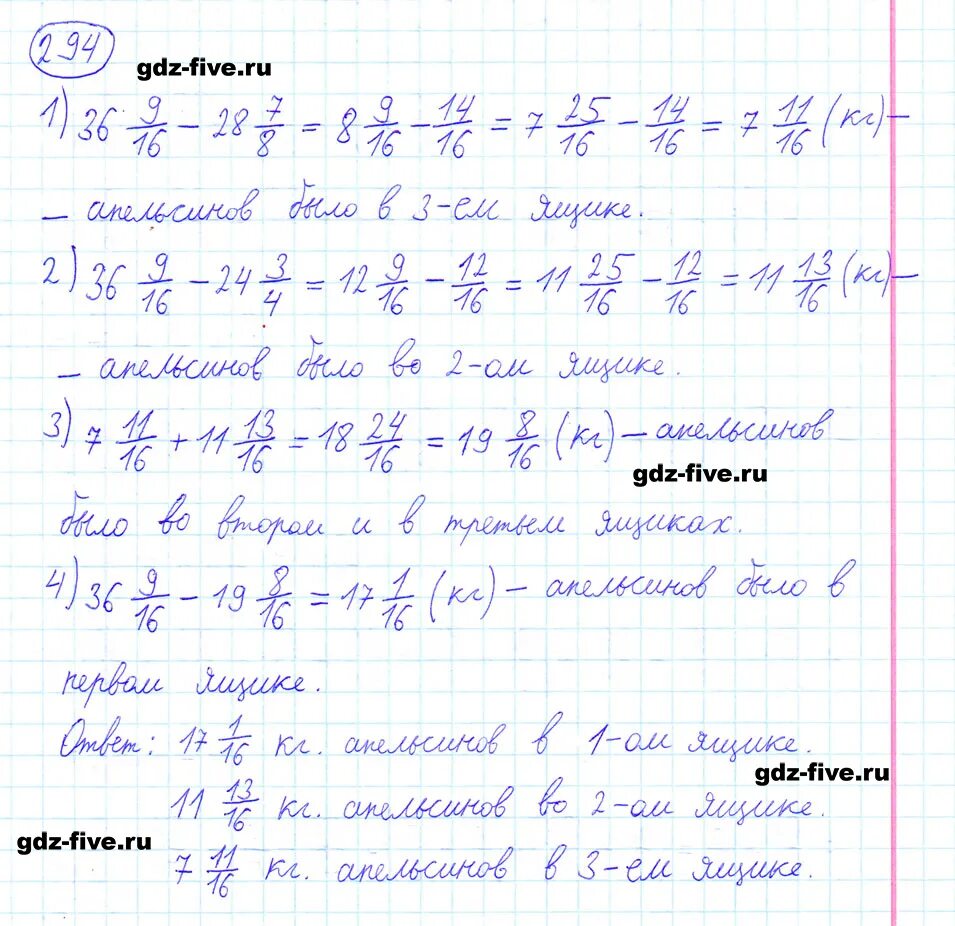 294
gdz-five.ru
1) 36 9/16 − 28 7/8 = 8 9/16 − 14/16 = 7 25/16 − 14/16 = 7 11/16 (кг) −
− апельсинов было в 3-ем ящике.
2) 36 9/16 − 24 3/4 = 12 9/16 − 12/16 = 11 25/16 − 12/16 = 11 13/16 (кг) −
− апельсинов было во 2-ом ящике.
3) 7 11/16 + 11 13/16 = 18 24/16 = 19 8/16 (кг) − апельсинов
gdz-five.ru
было во втором и в третьем ящиках.
4) 36 9/16 − 19 8/16 = 17 1/16 (кг) − апельсинов было в
первом ящике.
Ответ: 17 1/16 кг. апельсинов в 1-ом ящике.
gdz-five.ru
11 13/16 кг. апельсинов во 2-ом ящике.
gdz-five.ru
7 11/16 кг. апельсинов в 3-ем ящике.